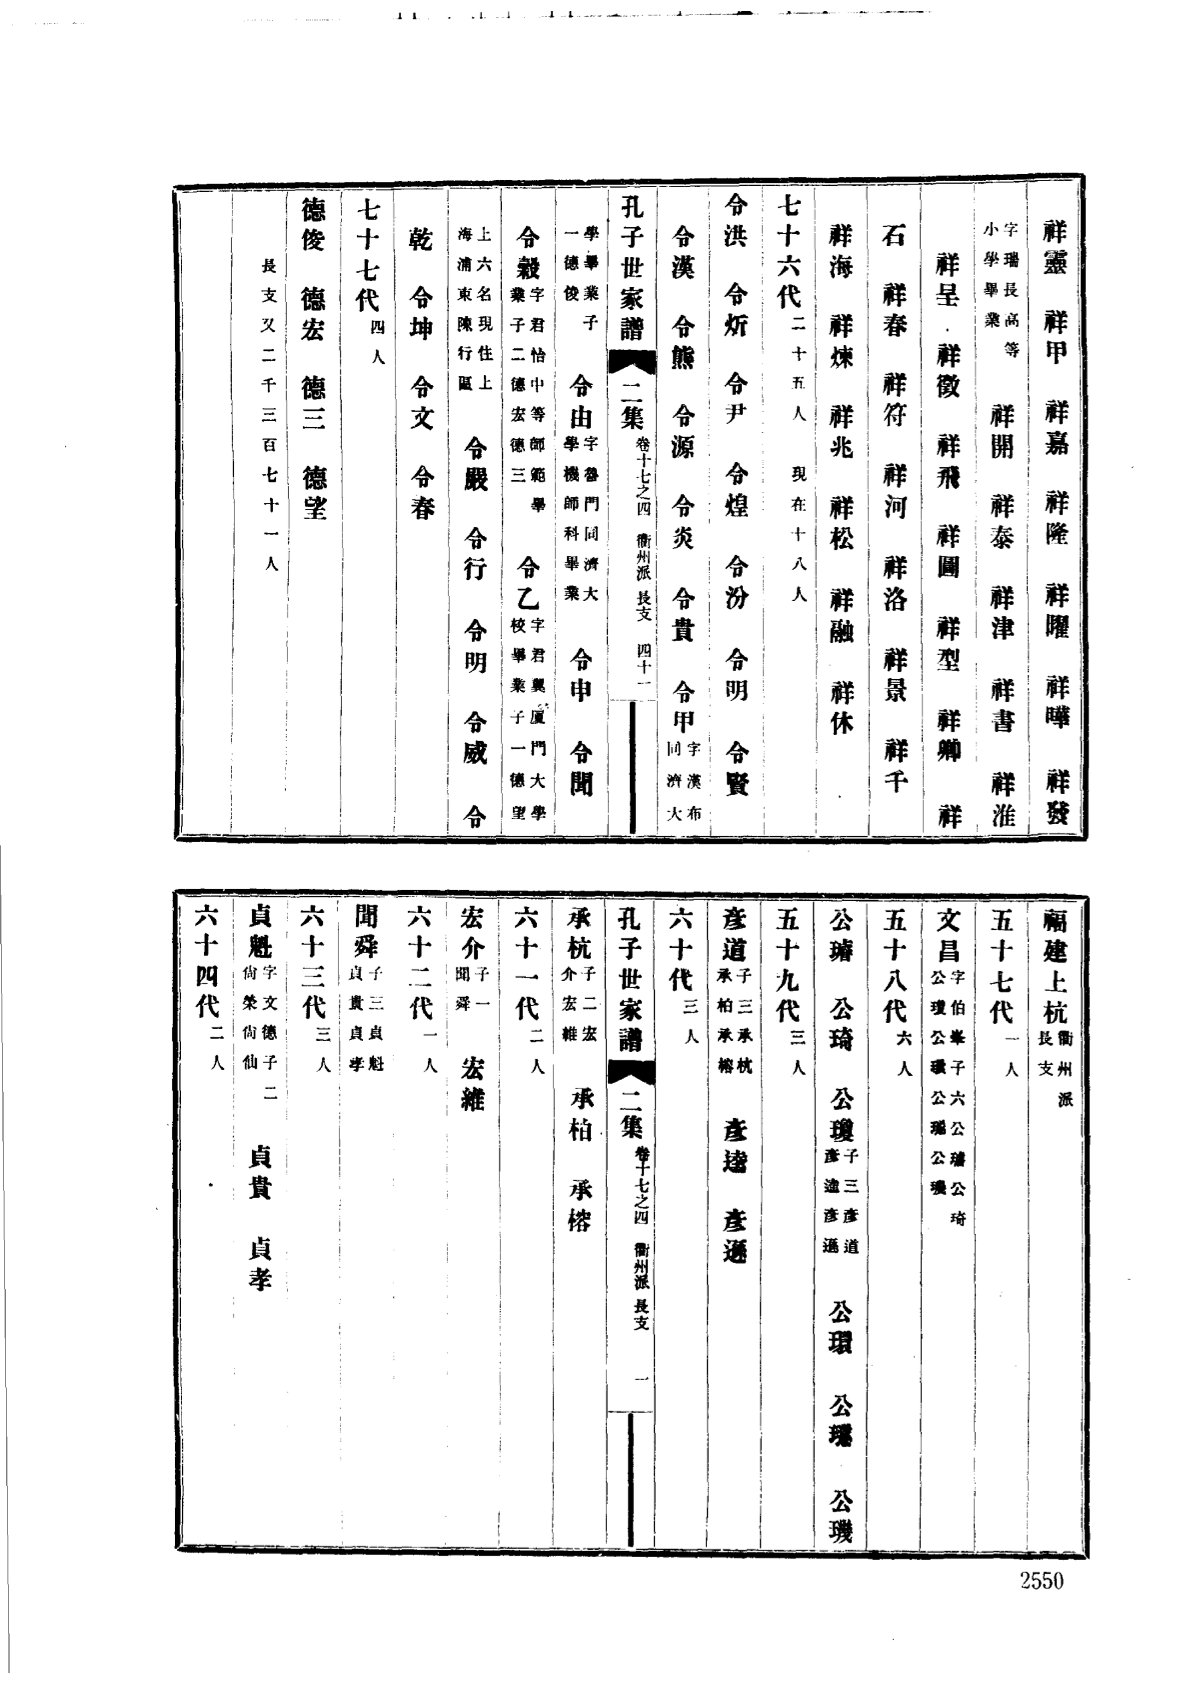 祥靈 祥甲 祥嘉 祥隆 祥曜 祥曄 祥發
字瑞長高等
小學畢業 祥開 祥泰 祥津 祥書 祥淮
祥呈 祥徵 祥飛 祥圖 祥型 祥卿 祥
石 祥春 祥符 祥河 祥洛 祥景 祥千
祥海 祥煉 祥兆 祥松 祥融 祥休
七十六代 二十五人 現在十八人
令洪 令炘 令尹 令煌 令汾 令明 令賢
令漢 令熊 令源 令炎 令貴 令甲 字漢布
同濟大
孔子世家譜 二集 卷十七之四 衢州派 長支 四十一
學畢業子
一德俊 令由 字魯門同濟大
學機師科畢業 令申 令聞
令穀 字君怡中等師範畢
業子二德宏德三 令乙 字君翼廈門大學
校畢業子一德望
上六名現住上
海浦東陳行區 令嚴 令行 令明 令威 令
乾 令坤 令文 令春
七十七代 四人
德俊 德宏 德三 德望
長支又二千三百七十一人
福建上杭 衢州派
長支
五十七代 一人
文昌 字伯峯子六公璿公琦
公瓊公環公公璣
五十八代 六人
公璿 公琦 公瓊 子三彥道
彥逵彥遜 公環 公 公璣
五十九代 三人
彥道 子三承杭
承柏承榕 彥逵 彥遜
六十代 三人
孔子世家譜 二集 卷十七之四 衢州派 長支 一
承杭 子二宏
介宏維 承柏 承榕
六十一代 二人
宏介 子一
聞舜 宏維
六十二代 一人
聞舜 子三貞魁
貞貴貞孝
六十三代 三人
貞魁 字文德子二
尙榮尙仙 貞貴 貞孝
六十四代 二人
2550